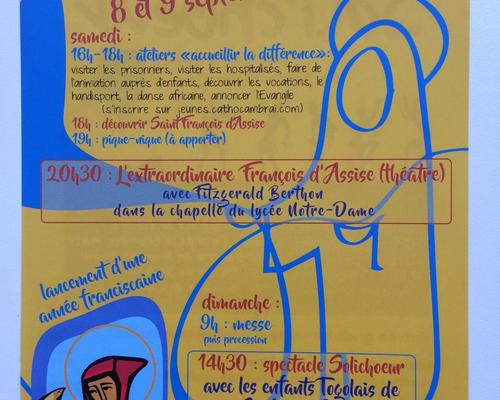 8 et 9
samedi :
16h-18h : ateliers «accueillir la différence»:
visiter les prisonniers, visiter les hospitalisés, faire de
l'animation auprès d'enfants, découvrir les vocations, le
handisport, la danse africaine, annoncer l'Evangile
(s'inscrire sur jeunes.cathocambrai.com)
18h : découvrir Saint François d'Assise
19h : pique-nique (à apporter)
20h30 : L'extraordinaire François d'Assise (théatre)
avec Fitzgerald Berthon
dans la chapelle du lycée Notre-Dame
lancement d'une
année franciscaine
dimanche :
9h : messe
puis procession
14h30 : spectacle Solichoeur
avec les enfants Togolais de